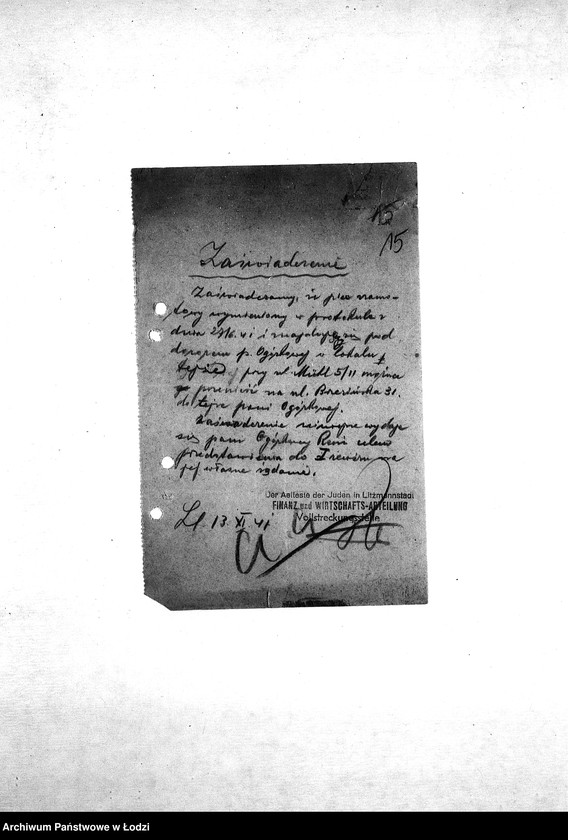 15
15
Zaświadczenie
Zaświadczamy, że piec szamo-
towy wymieniony w protokule z
dnia 27/6. 41 i znajdujący się pod
dozorem p. Ogórkowej w lokalu
tejże przy ul. Mühl 5/11 można
przenieść na ul. Brzezińska 31.
do tejże pani Ogórkowej.
Zaświadczenie niniejsze wydaje
się pani Ogórkowej celem
przedstawienia do I rewiru na
jej własne żądanie.
Der Aelteste der Juden in Litzmannstadt
FINANZ und WIRTSCHAFTS-ABTEILUNG
Vollstreckungsstelle
13. XI. 41
Archiwum Państwowe w Łodzi